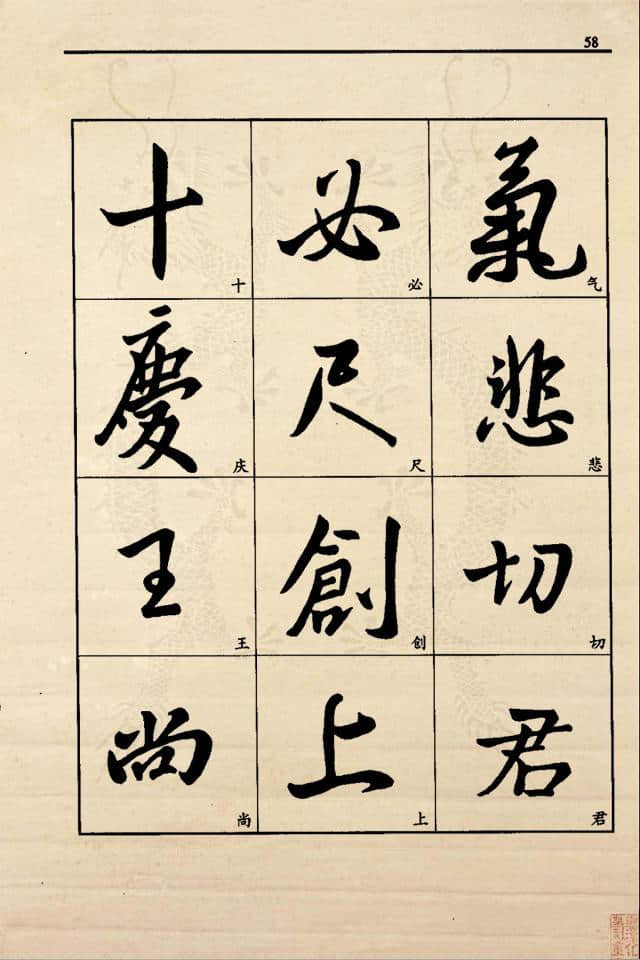 58
氣悲切君
气悲切君
必尺創上
必尺创上
十慶王尚
十庆王尚